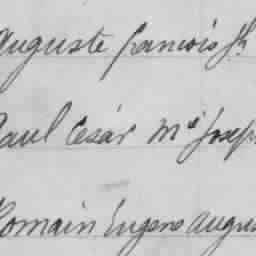 Auguste francois Jh
Paul Cesár Mie Josep
Romain Eugene Augus